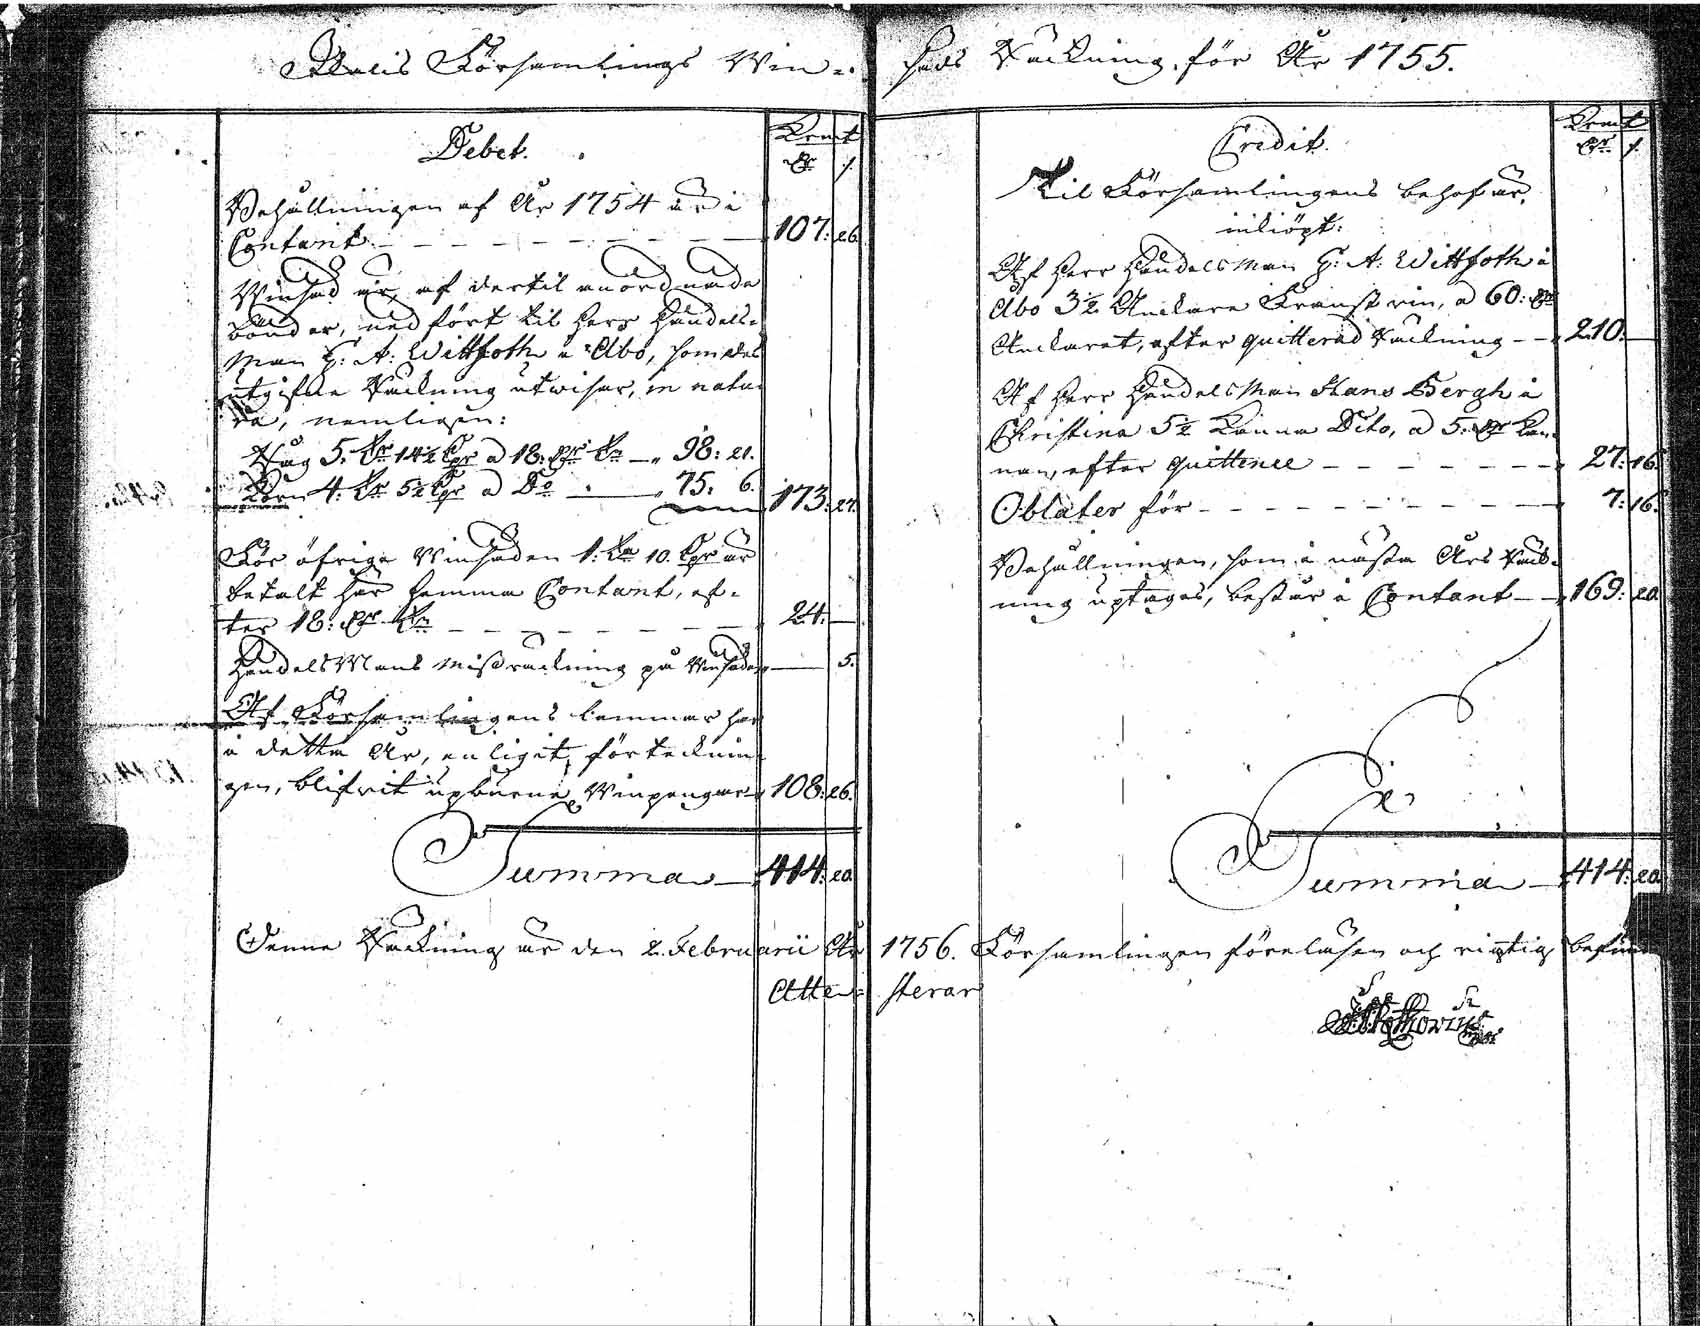 Församlings Win-
säds Räckning, för År 1755.
Debet.
Behållningen af År 1754 är i
Contant 107: 26
Winsäd är, af dertil anordnade
bönder, nedfört til Herr Handels-
Man H: A: Wittfoth i Åbo, som des
utgifne Räckning utwisar, in natu-
ra, nemligen:
Råg 5. 14½ a 18: 98: 21.
Korn 4. 5½ a Do 75: 6. 173: 27.
För öfriga Winsäden 1: 10. är
betalt här hemma Contant, ef-
ter 18: 24:
HandelsMans missräckning på Winsäden 5.
Af Församlingens lemmar har
i detta År, enligit förtecknin-
gen, blifwit upburne Winpengar 108: 26.
Summa 414: 20
Credit.
Til Församlingens behof är
inköpt:
Af Herr HandelsMan H: A: Wittfoth i
Åbo 3½ Anckare Franst win, a 60:
Anckaret, efter quitterad Räckning 210:
Af Herr HandelsMan Hans Bergh i
Christina 5½ Kanna Dito, a 5: Kan-
nan, efter quittence 27: 16.
Oblater för 7: 16.
Behållningen, som i nästa Års Räck-
ning uptages, består i Contant 169: 20
Summa 414: 20
Denne Räckning är den 2. Februarii År 1756. Församlingen föreläsen och richtig befun
Atte-sterar